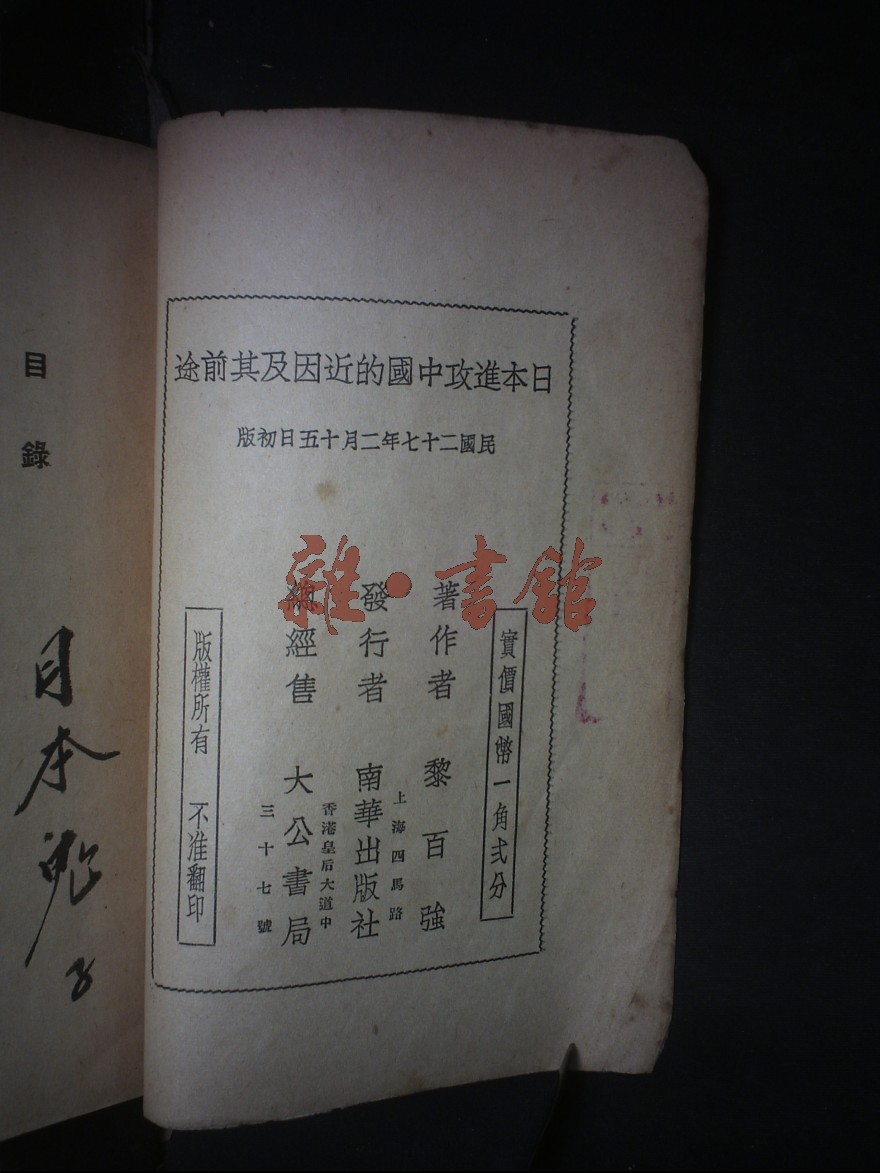 日本進攻中國的近因及其前途
民國二十七年二月十五日初版
實價國幣一角弍分
著作者 黎百強
發行者 南華出版社
上海四馬路
總經售 大公書局
香港皇后大道中
三十七號
版權所有 不准翻印
雜·書館
目錄
日本鬼子